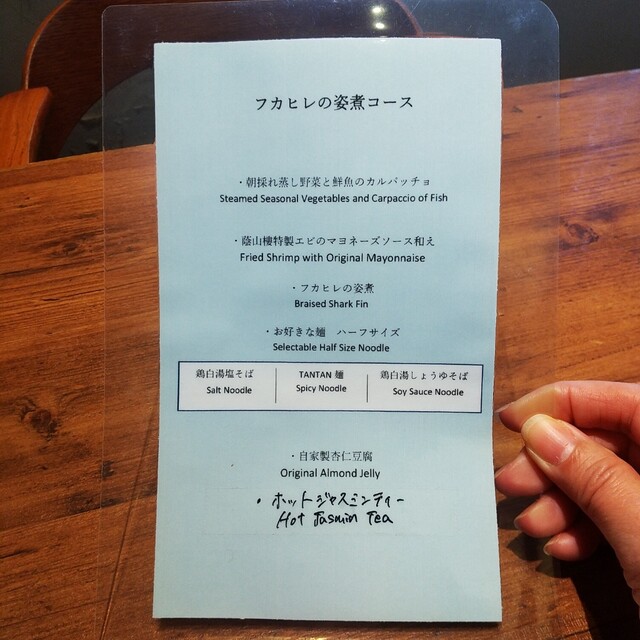 フカヒレの姿煮コース
・朝採れ蒸し野菜と鮮魚のカルパッチョ
Steamed Seasonal Vegetables and Carpaccio of Fish
・蔭山樓特製エビのマヨネーズソース和え
Fried Shrimp with Original Mayonnaise
・フカヒレの姿煮
Braised Shark Fin
・お好きな麺 ハーフサイズ
Selectable Half Size Noodle
鶏白湯塩そば
Salt Noodle
TANTAN 麺
Spicy Noodle
鶏白湯しょうゆそば
Soy Sauce Noodle
・自家製杏仁豆腐
Original Almond Jelly
・ホットジャスミンティー
Hot Jasmin Tea